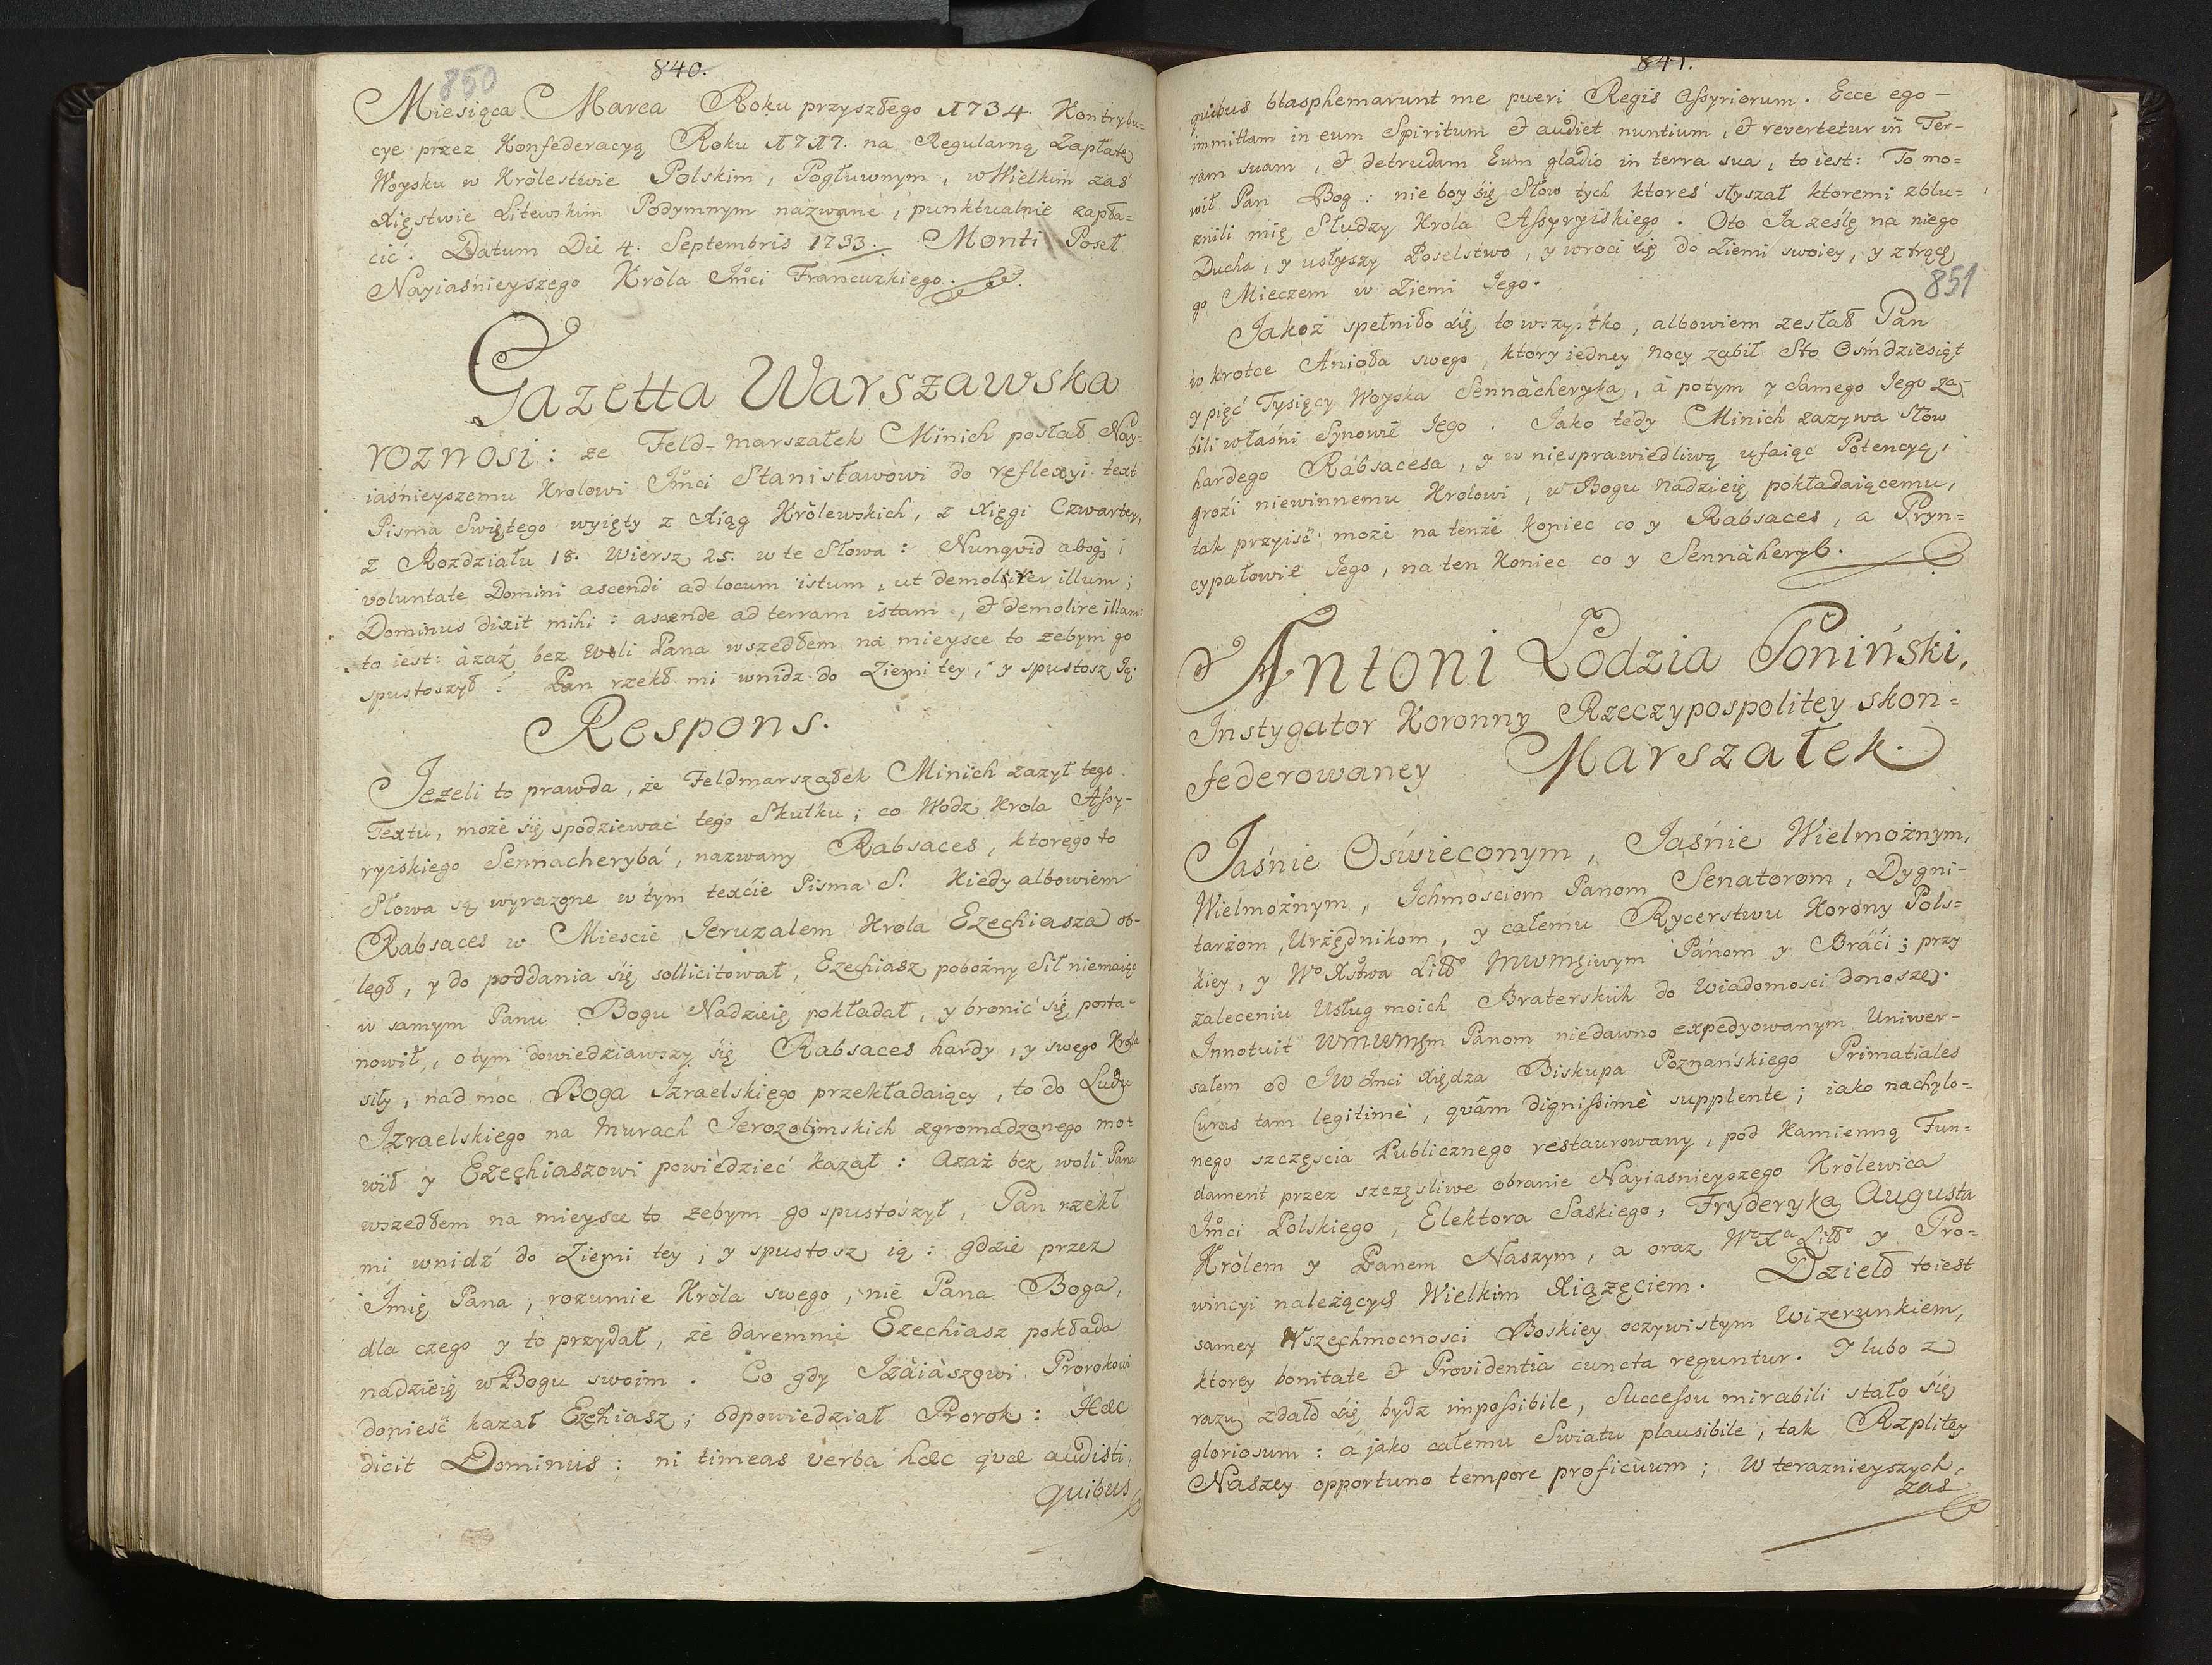 850
840.
Miesiąca Marca Roku przyszłego 1734. Kontrybu=
cye przez Konfederacyą Roku 1717. na Regularną Zapłatę
Woysku w Królestwie Polskim, Pogłuwnym, w Wielkim zaś
Xięstwie Litewskim Podymnym nazwane, punktualnie zapła=
cić. Datum Die 4. Septembris 1733. Monti Poseł
Nayiaśnieyszego Króla Jmci Francuzkiego.
Gazetta Warszawska
roznosi: ze Feld-marszałek Minich posłał Nay=
iaśnieyszemu Krolowi Jmci Stanisławowi do reflexyi text
Pisma Swiętego wyięty z Xiąg Królewskich, z Xięgi Czwartey,
z Rozdziału 18. Wiersz 25. w te Słowa: Nunqvid absqs
voluntate Domini ascendi ad locum istum, ut demolirer illum;
Dominus dixit mihi: ascende ad terram istam, & demolire illam
to iest: àzaż bez Woli Pana wszedłem na mieysce to zebym go
spustoszył? Pan rzekł mi wnidz do Ziemi tey, y spustosz Ią.
Respons.
Jezeli to prawda, że Feldmarszałek Minich zazył tego
Textu, może się spodziewać tego Skutku; co Wodz Krola Assy-
ryiskiego Sennacherybá, nazwany Rabsaces, ktorego to
Słowa są wyrazone w tym texcie Pisma S. Kiedy albowiem
Rabsaces w Miescie Jeruzalem Krola Ezechiasza ob-
legł, y do poddania się sollicitował, Ezechiasz pobożny Sił niemaiąc
w samym Panu Bogu Nadzieię pokładał, y bronić się posta-
nowił, o tym dowiedziawszy się Rabsaces hardy, y swego Krola
siły, nad moc Boga Izraelskiego przekładaiący, to do Ludu
Izraelskiego na Murach Ierozolimskich zgromadzonego mo=
wił y Ezechiaszowi powiedzieć kazał: Azaż bez woli Pana
wszedłem na mieysce to zebym go spustoszył, Pan rzekł
mi wnidź do Ziemi tey; y spustosz ią: gdzie przez
Imię Pana, rozumie Króla swego, nie Pana Boga,
dla czego y to przydał, że daremnie Ezechiasz pokłada
nadzieię w Bogu swoim. Co gdy Izaiaszowi Prorokowi
donieść kazał Ezechiasz; odpowiedział Prorok: Hæc
dicit Dominus: ni timeas verba hæc qvæ audisti,
quibus
841.
quibus blasphemarunt me pueri Regis Assyriorum. Ecce ego-
immittam in eum Spiritum & audiet nuntium, & revertetur in Ter-
ram suam, & detrudam Eum gladio in terra sua, to iest: To mo=
wił Pan Bog: nie boy się Słow tych ktoreś słyszał ktoremi zblu=
znili mię Słudzy Krola Assyryiskiego. Oto Ia ześlę na niego
Ducha, y usłyszy Poselstwo, y wroci się do Ziemi swoiey, y ztrącę
go Mieczem w Ziemi Iego.
851
Jakoż spełniło się to wszystko, albowiem zesłał Pan
w krotce Anioła swego, ktory iedney nocy zabił Sto Osmdziesiąt
y pięć Tysięcy Woyska Sennácheryba, á potym y samego Iego za-
bili właśni Synowie Iego. Jako tedy Minich zazywa Słow
hardego Rabsacesa, y w niesprawiedliwą ufaiąc Potencyą,
grozi niewinnemu Krolowi, w Bogu nadzieię pokładaiącemu,
tak przyiść może na tenże koniec co y Rabsaces, a Pryn=
cypałowie Iego, na ten Koniec co y Sennàheryb.
Antoni Lodzia Poniński,
Instygator Koronny Rzeczypospolitey skon=
federowaney Marszałek.
Jaśnie Oświeconym, Jaśnie Wielmożnym,
Wielmożnym, Ichmościom Panom Senatorom, Dygni-
tarżom, Urżędnikom, y całemu Rycerstwu Korony Pols=
kiey, y Wo Xstwa Littgo MWMściwym Pánom y Bráći; przy
zaleceniu Usług moich Braterskich do wiadomosci donoszę.
Innotuit WMWMśm Panom niedawno expedyowanym Uniwer-
sałem od JW Jmci Xiędza Biskupa Poznańskiego Primatiales
Curas tam legitimè, qvâm dignissimè supplente; iako nachylo=
nego szczęscia Publicznego restaurowany, pod kamienną Fun=
dament przez szczęsliwe obranie Nayiasnieyszego Królewica
Jmci Polskiego, Elektora Saskiego, Fryderyka Augusta
Królem y Panem Naszym, a oraz WoXa Littgo y Pro=
wincyi należących Wielkim Xiązęciem. Dzieło to iest
samey Wszechmocnosci Boskiey oczywistym Wizerunkiem,
ktorey bonitate & Providentia cuncta reguntur. I lubo z
razu zdało się bydz impossibile, Successu mirabili stało się
gloriosum: a jako całemu Swiatu plausibile, tak Rzplitey
Naszey opportuno tempore proficuum; W teraznieyszych
zaś